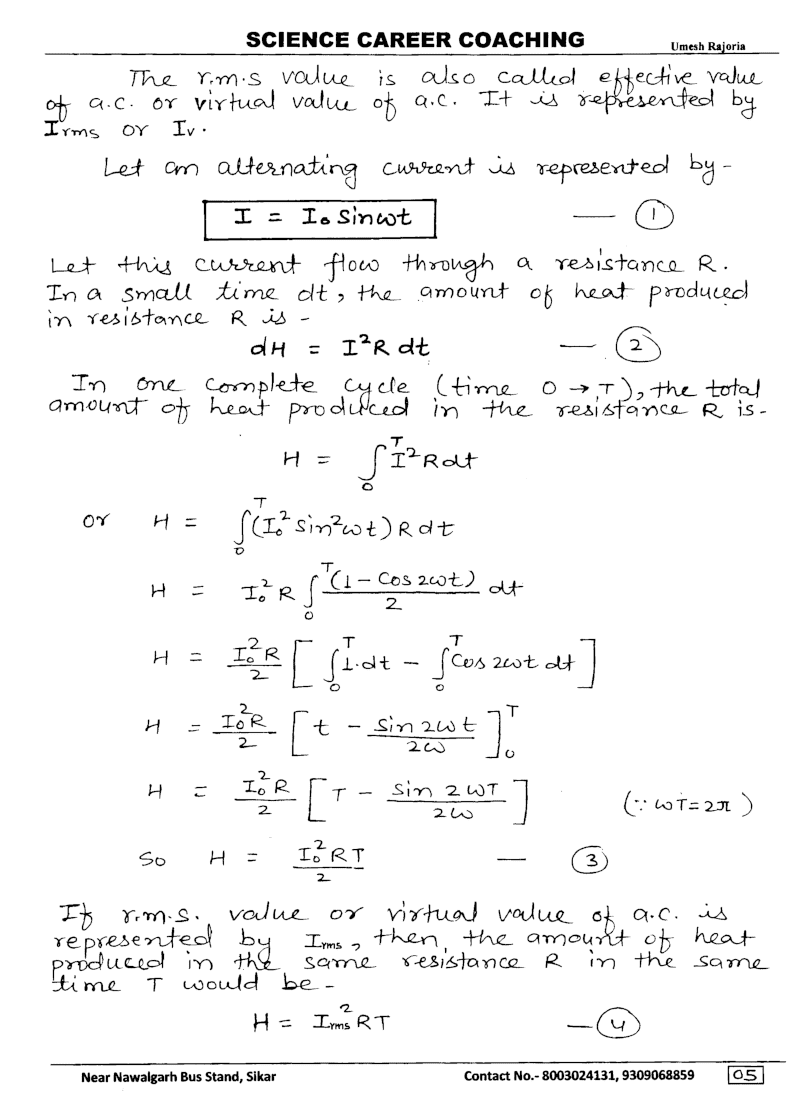 SCIENCE CAREER COACHING
Umesh Rajoria
The r.m.s value is also called effective value
of a.c. or virtual value of a.c. It is represented by
Irms or Iv.
Let an alternating current is represented by -
I = I₀ Sinωt — ①
Let this current flow through a resistance R.
In a small time dt, the amount of heat produced
in resistance R is -
dH = I²R dt — ②
In one complete cycle (time 0 → T), the total
amount of heat produced in the resistance R is -
H = ∫₀ᵀ I² R dt
or H = ∫₀ᵀ (I₀² sin²ωt) R dt
H = I₀² R ∫₀ᵀ (1 - Cos 2ωt)/2 dt
H = I₀²R/2 [ ∫₀ᵀ 1.dt - ∫₀ᵀ Cos 2ωt dt ]
H = I₀²R/2 [ t - Sin 2ωt/2ω ]₀ᵀ
H = I₀²R/2 [ T - Sin 2ωT/2ω ] (∵ ωT = 2π)
So H = I₀²RT/2 — ③
If r.m.s. value or virtual value of a.c. is
represented by Irms, then, the amount of heat
produced in the same resistance R in the same
time T would be -
H = Irms² RT — ④
Near Nawalgarh Bus Stand, Sikar
Contact No.- 8003024131, 9309068859
05